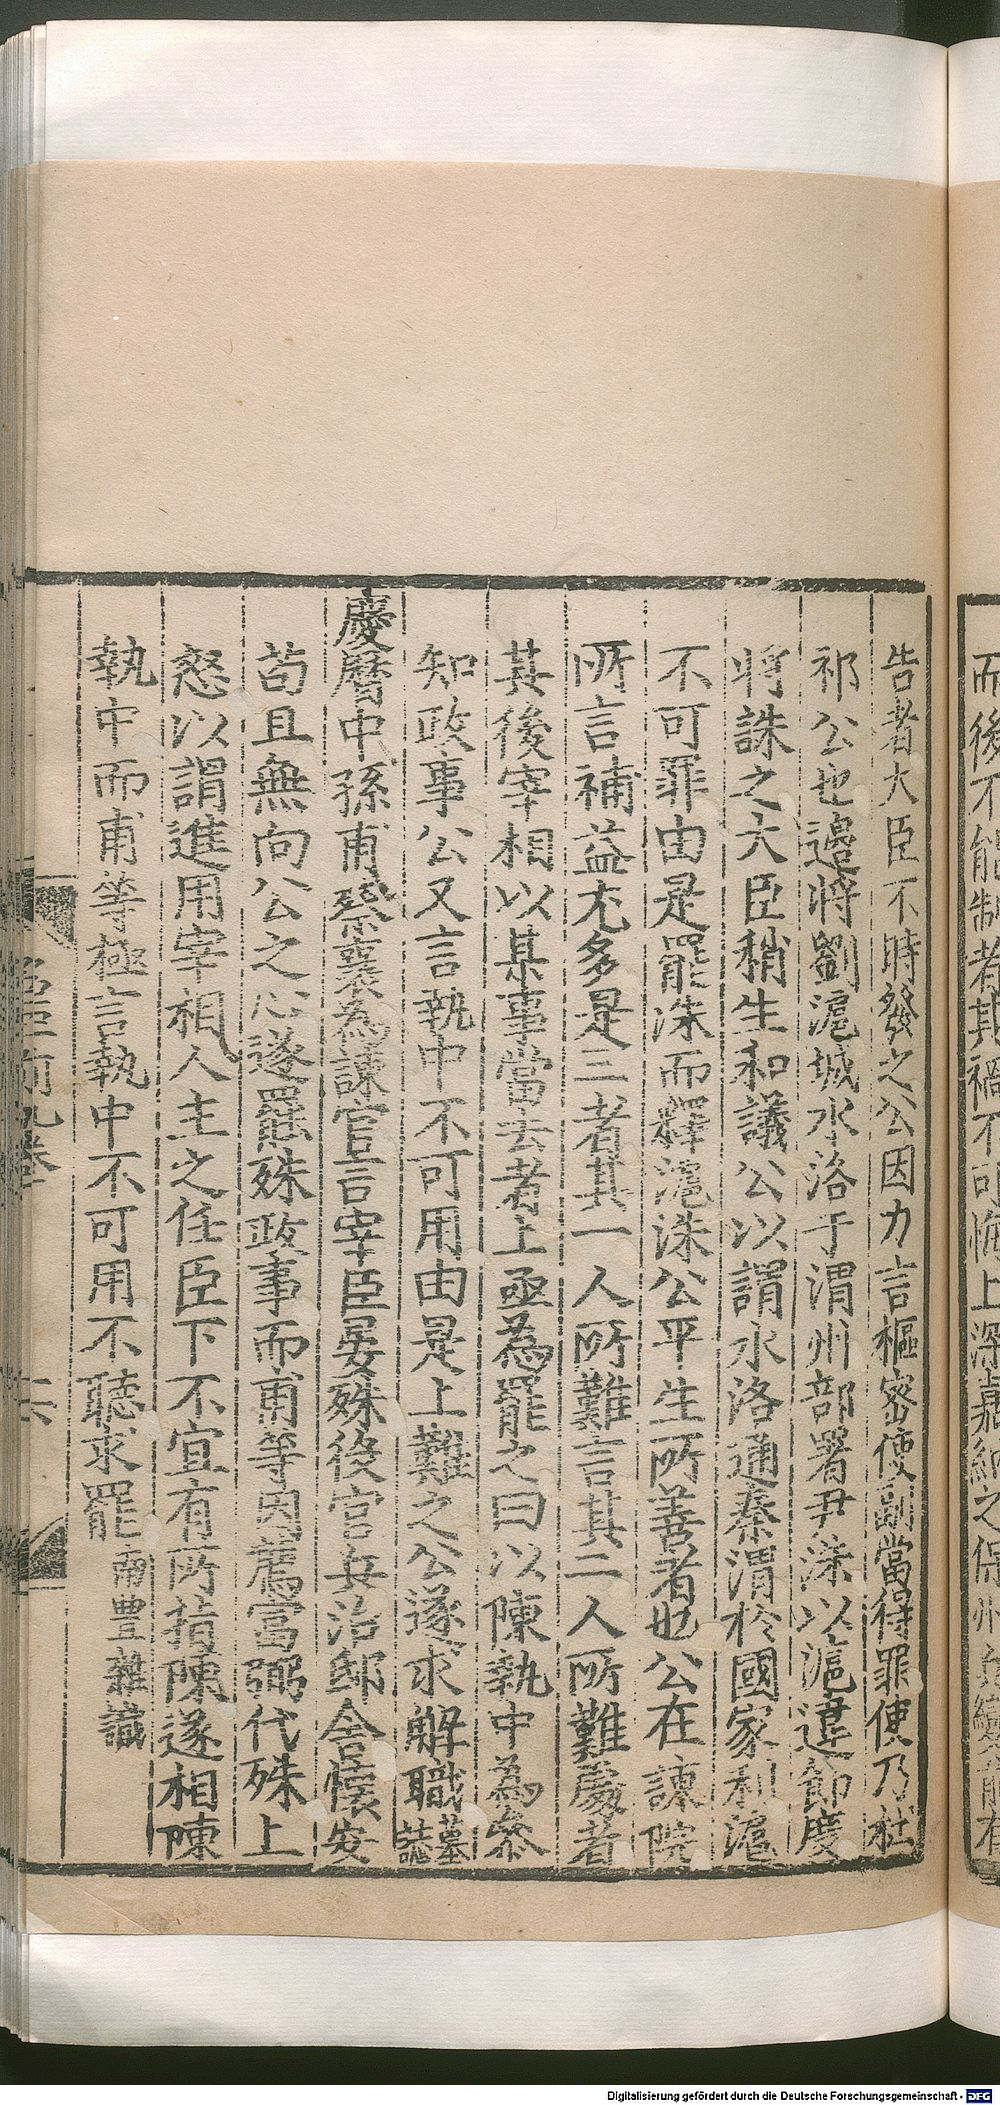 而後不能制者其禍不可悔上深嘉納之保州兵變前有
告者大臣不時發之公因力言樞密使副當得罪使乃杜
祁公也邊將劉滬城水洛于渭州部署尹洙以滬違節度
將誅之大臣稍主和議公以謂水洛通秦渭於國家利滬
不可罪由是罷洙而釋滬洙公平生所善者也公在諫院
所言補益尤多是三者其一人所難言其二人所難處者
其後宰相以某事當去者上亟為罷之曰以陳執中為叅
知政事公又言執中不可用由是上難之公遂求解職墓誌
慶曆中孫甫蔡襄為諫官言宰臣晏殊役官兵治邸舍懷安
苟且無向公之心遂罷殊政事而甫等因薦富弼代殊上
怒以謂進用宰相人主之任臣下不宜有所指陳遂相陳
執中而甫等極言執中不可用不聽求罷南豐雜識
名臣前九卷
六
Digitalisierung gefördert durch die Deutsche Forschungsgemeinschaft - DFG